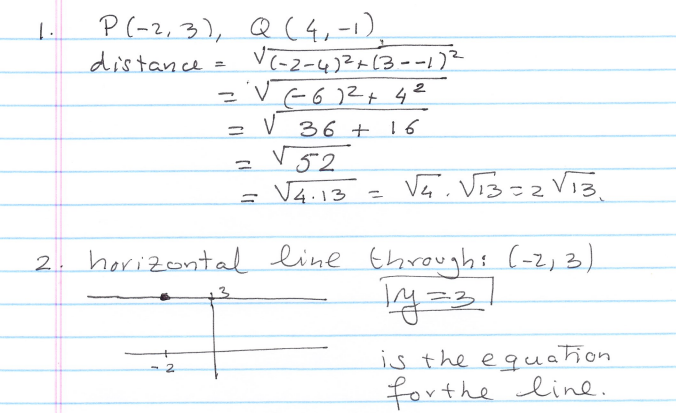 1. P(-2, 3), Q(4, -1)
distance = √(-2-4)²+(3--1)²
= √(-6)²+ 4²
= √36 + 16
= √52
= √4.13 = √4 . √13 = 2√13.
2. horizontal line through: (-2, 3)
3
y = 3
-2
is the equation
for the line.